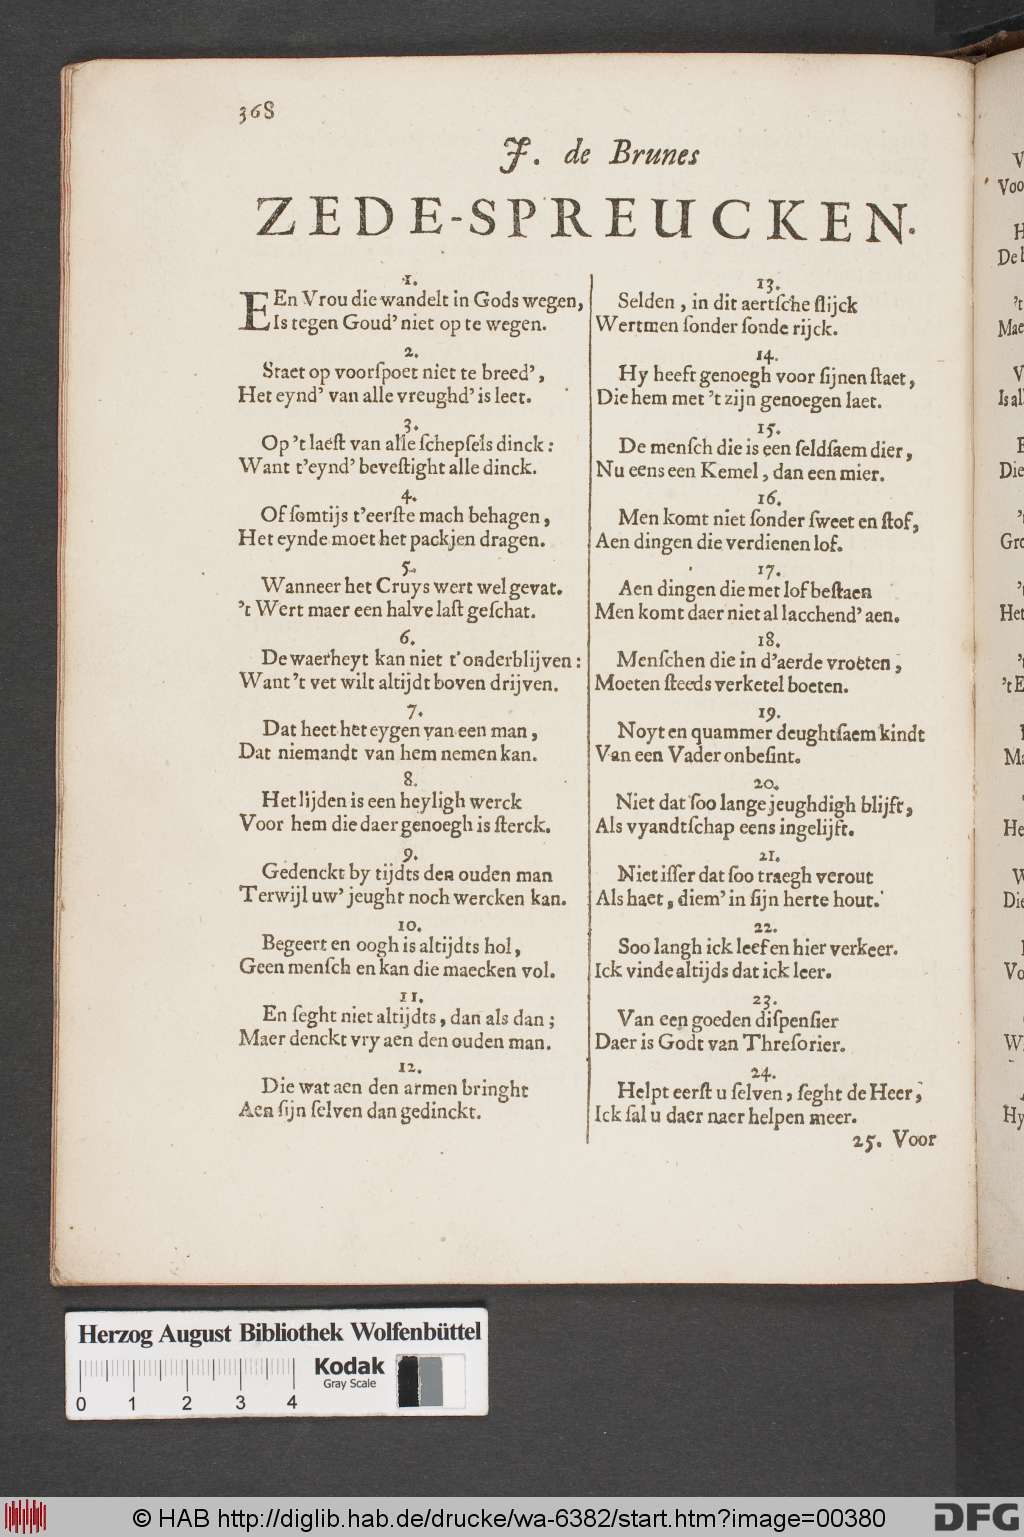 368
J. de Brunes
ZEDE-SPREUCKEN.
1.
EEn Vrou die wandelt in Gods wegen,
Is tegen Goud' niet op te wegen.
2.
Staet op voorſpoet niet te breed',
Het eynd' van alle vreughd' is leet.
3.
Op 't laeſt van alle ſchepſels dinck:
Want t'eynd' beveſtight alle dinck.
4.
Of ſomtijs t'eerſte mach behagen,
Het eynde moet het packjen dragen.
5.
Wanneer het Cruys wert wel gevat.
't Wert maer een halve laſt geſchat.
6.
De waerheyt kan niet t'onderblijven:
Want 't vet wilt altijdt boven drijven.
7.
Dat heet het eygen van een man,
Dat niemandt van hem nemen kan.
8.
Het lijden is een heyligh werck
Voor hem die daer genoegh is ſterck.
9.
Gedenckt by tijdts den ouden man
Terwijl uw' jeught noch wercken kan.
10.
Begeert en oogh is altijdts hol,
Geen menſch en kan die maecken vol.
11.
En ſeght niet altijdts, dan als dan;
Maer denckt vry aen den ouden man.
12.
Die wat aen den armen bringht
Aen ſijn ſelven dan gedinckt.
13.
Selden, in dit aertſche ſlijck
Wertmen ſonder ſonde rijck.
14.
Hy heeft genoegh voor ſijnen ſtaet,
Die hem met 't zijn genoegen laet.
15.
De menſch die is een ſeldſaem dier,
Nu eens een Kemel, dan een mier.
16.
Men komt niet ſonder ſweet en ſtof,
Aen dingen die verdienen lof.
17.
Aen dingen die met lof beſtaen
Men komt daer niet al lacchend' aen.
18.
Menſchen die in d'aerde vroeten,
Moeten ſteeds verketel boeten.
19.
Noyt en quammer deughtſaem kindt
Van een Vader onbeſint.
20.
Niet dat ſoo lange jeughdigh blijft,
Als vyandtſchap eens ingelijft.
21.
Niet iſſer dat ſoo traegh verout
Als haet, diem' in ſijn herte hout.
22.
Soo langh ick leef en hier verkeer.
Ick vinde altijds dat ick leer.
23.
Van een goeden diſpenſier
Daer is Godt van Threſorier.
24.
Helpt eerſt u ſelven, ſeght de Heer,
Ick ſal u daer naer helpen meer.
25. Voor
Herzog August Bibliothek Wolfenbüttel
Kodak
Gray Scale
0 1 2 3 4
© HAB http://diglib.hab.de/drucke/wa-6382/start.htm?image=00380
DFG